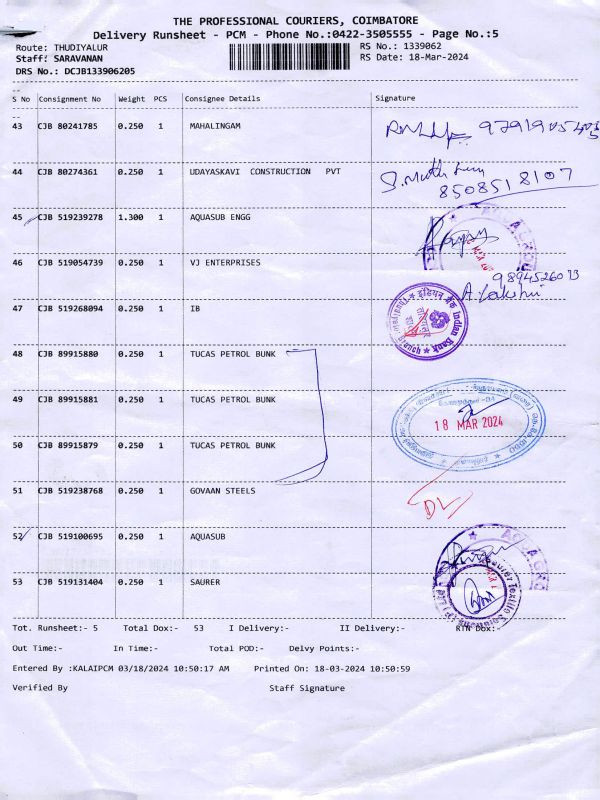 THE PROFESSIONAL COURIERS, COIMBATORE
Delivery Runsheet - PCM - Phone No.:0422-3505555 - Page No.:5
Route: THUDIYALUR RS No.: 1339062
Staff: SARAVANAN RS Date: 18-Mar-2024
DRS No.: DCJB133906205
S No Consignment No Weight PCS Consignee Details Signature
43 CJB 80241785 0.250 1 MAHALINGAM
44 CJB 80274361 0.250 1 UDAYASKAVI CONSTRUCTION PVT
8508518107
45 CJB 519239278 1.300 1 AQUASUB ENGG
46 CJB 519054739 0.250 1 VJ ENTERPRISES
9894526073
A. Lakshmi
47 CJB 519268094 0.250 1 IB
इंडियन बैंक Indian Bank
48 CJB 89915880 0.250 1 TUCAS PETROL BUNK
49 CJB 89915881 0.250 1 TUCAS PETROL BUNK
18 MAR 2024
50 CJB 89915879 0.250 1 TUCAS PETROL BUNK
51 CJB 519238768 0.250 1 GOVAAN STEELS
DL
52 CJB 519100695 0.250 1 AQUASUB
53 CJB 519131404 0.250 1 SAURER
Tot. Runsheet:- 5 Total Dox:- 53 I Delivery:- II Delivery:- RTN Dox:-
Out Time:- In Time:- Total POD:- Delvy Points:-
Entered By :KALAIPCM 03/18/2024 10:50:17 AM Printed On: 18-03-2024 10:50:59
Verified By Staff Signature